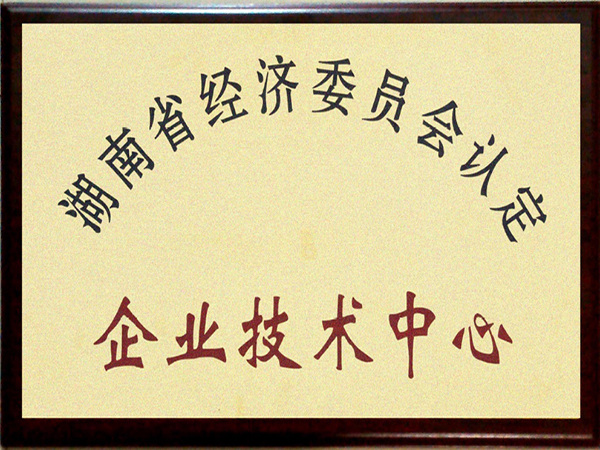 湖南省经济委员会认定
企业技术中心